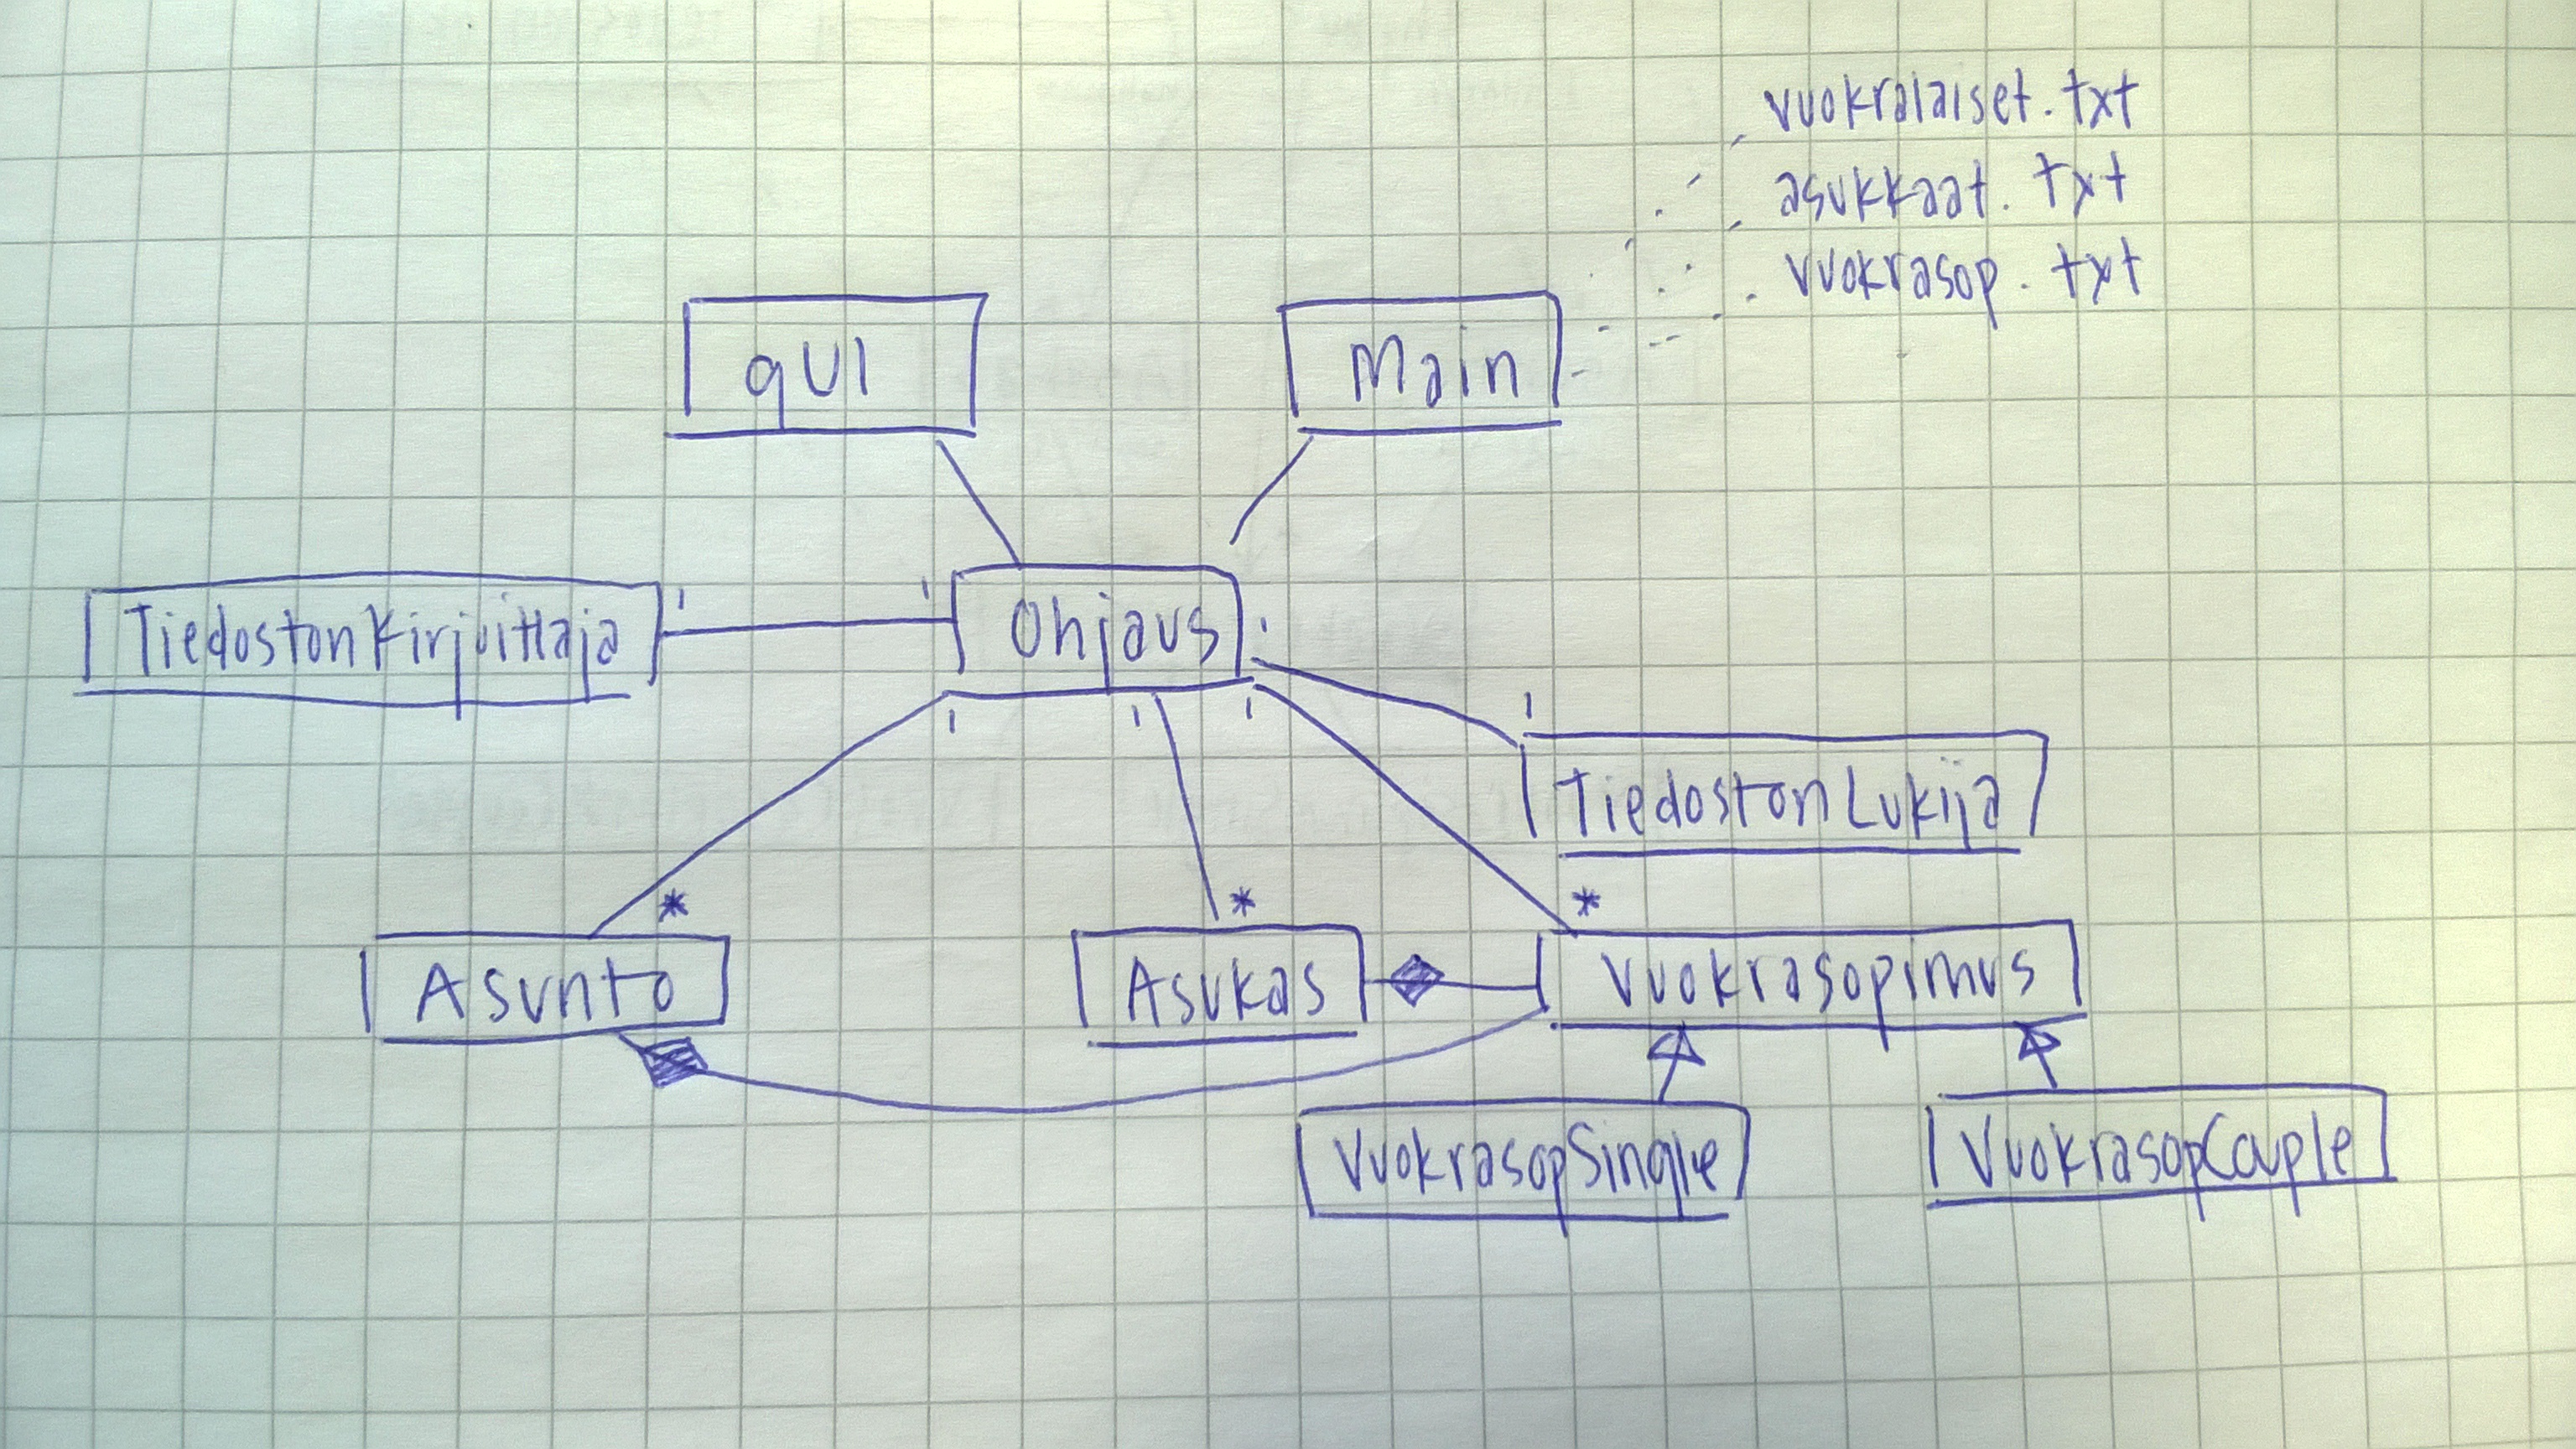 vuokralaiset.txt
asukkaat.txt
vuokrasop.txt
gUI
Main
TiedostonKirjoittaja
1
1
Ohjaus
1
1
1
1
1
TiedostonLukija
*
*
*
Asunto
Asukas
Vuokrasopimus
VuokrasopSingle
VuokrasopCouple